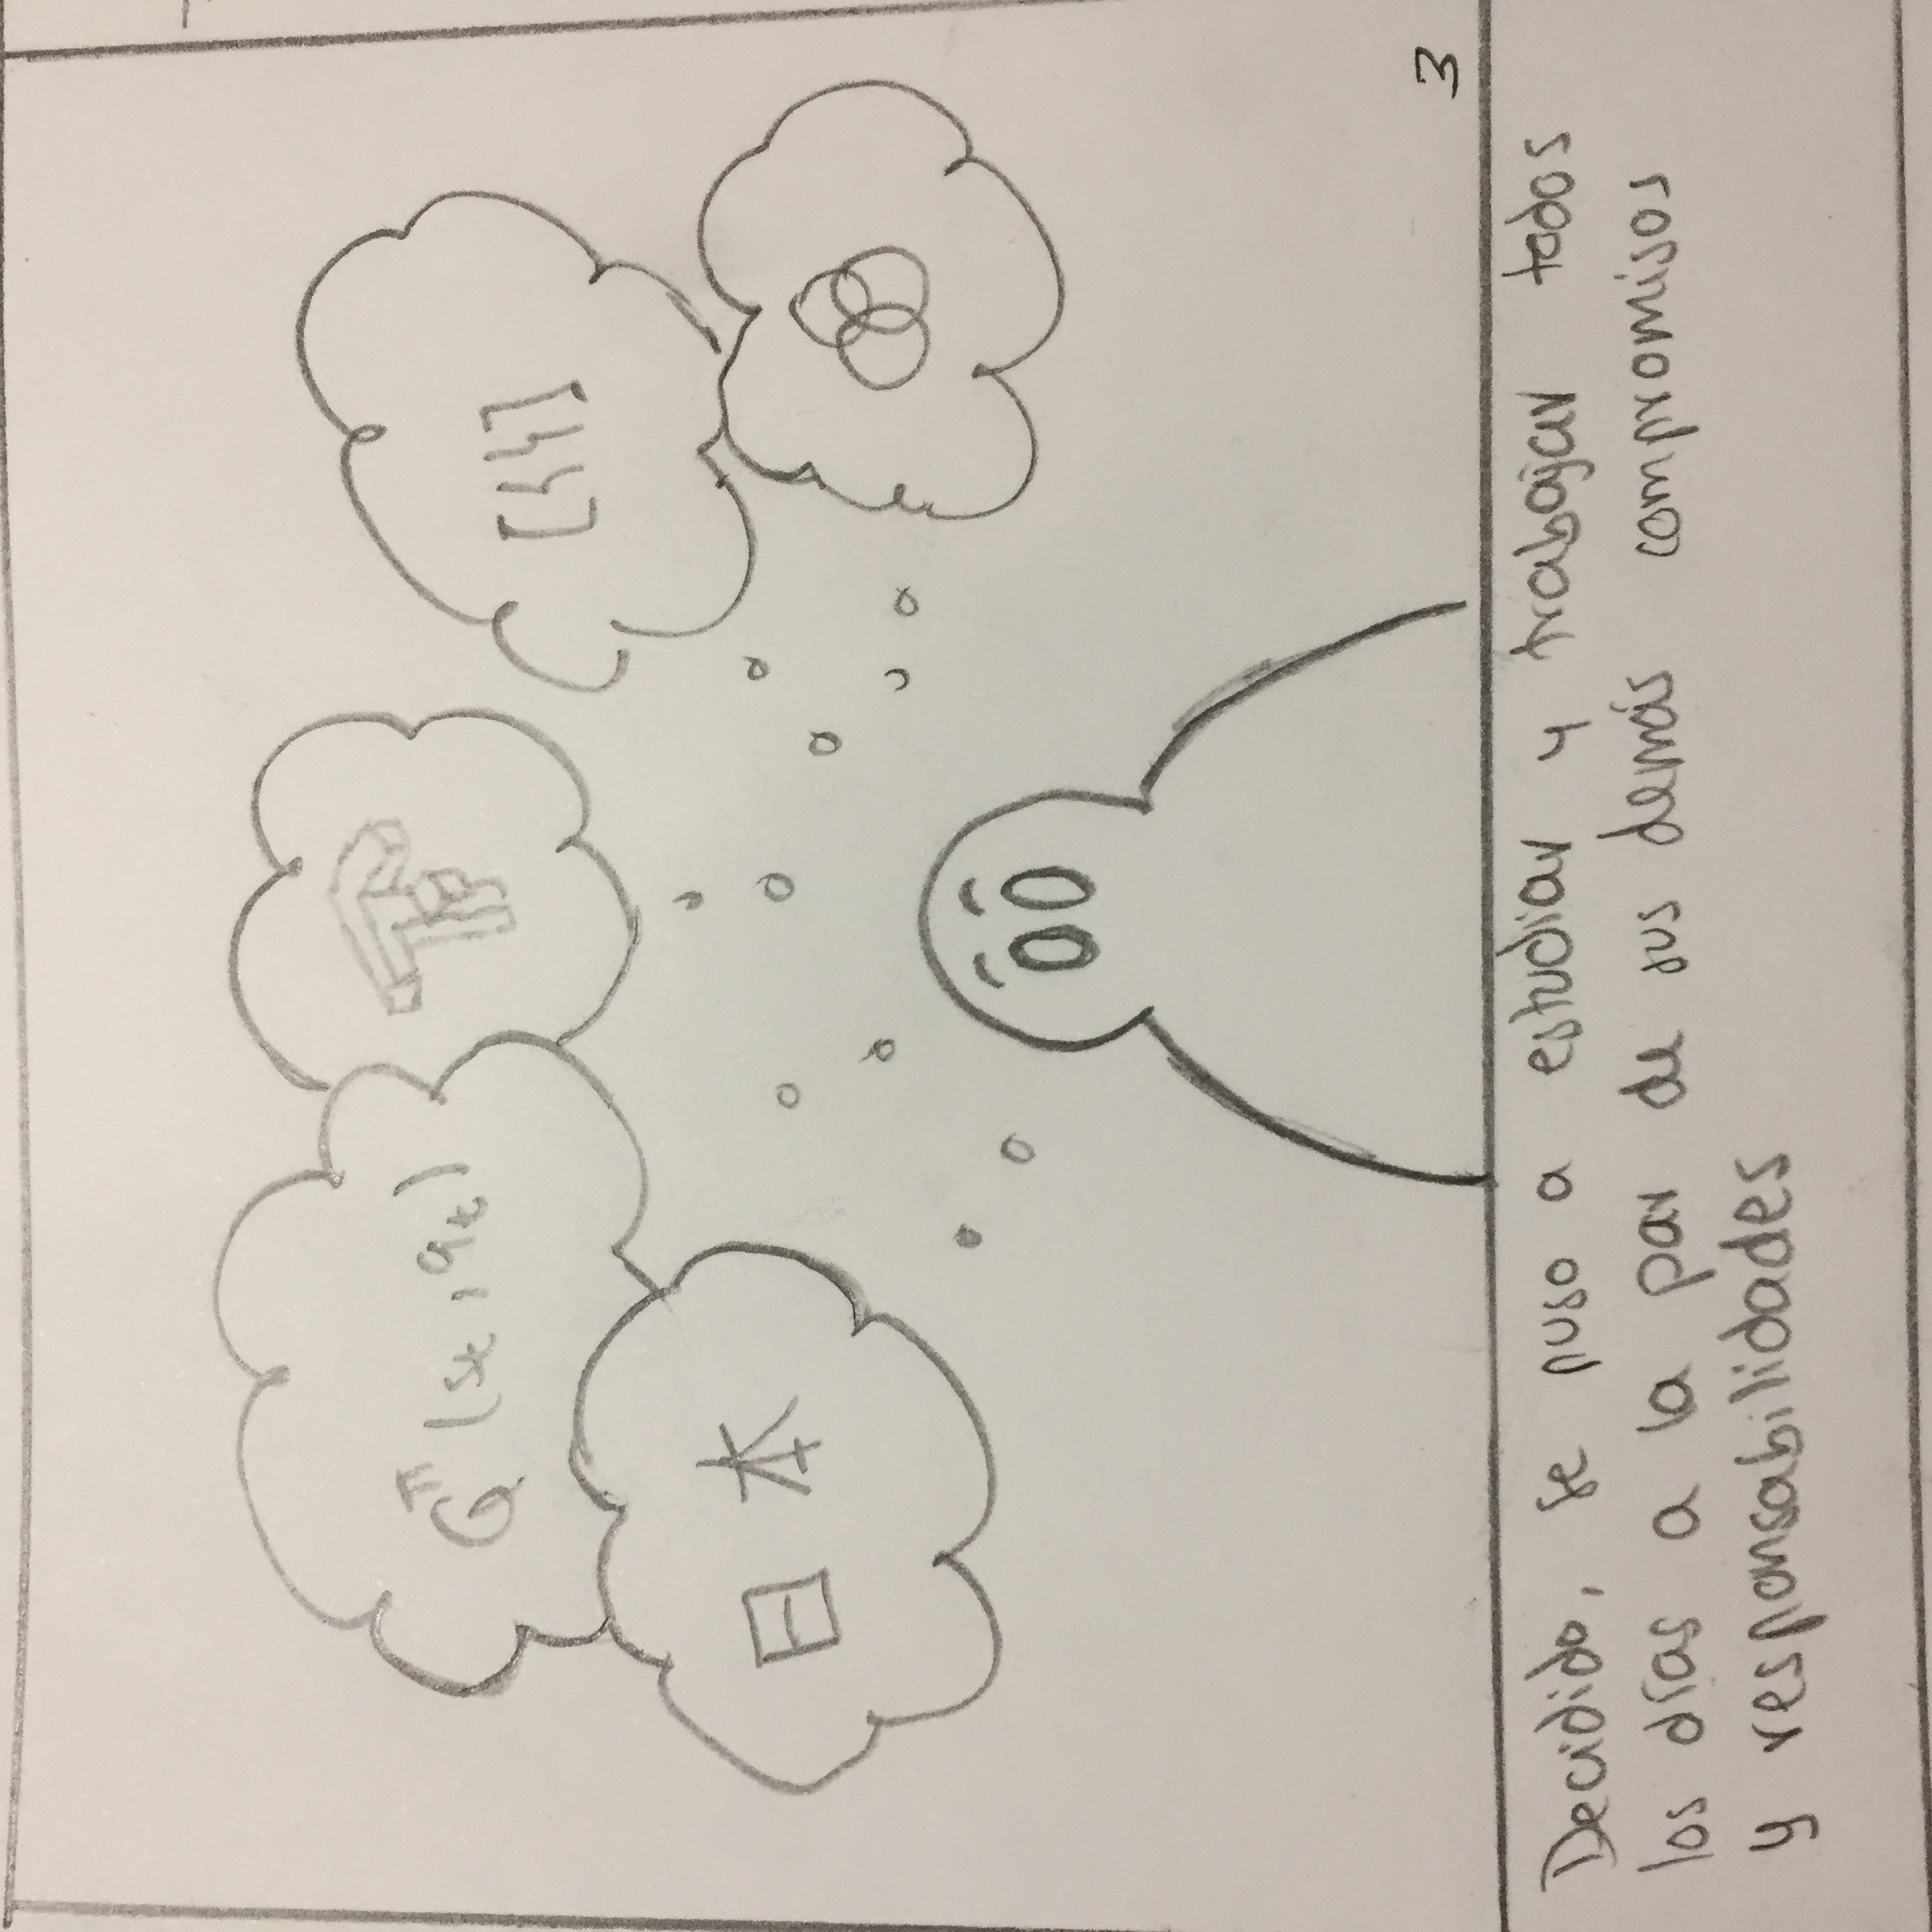 Q^π (s_t, a_t)
[{}]
日 本
3
Decidido, se puso a estudiar y trabajar todos
los días a la par de sus demás compromisos
y responsabilidades